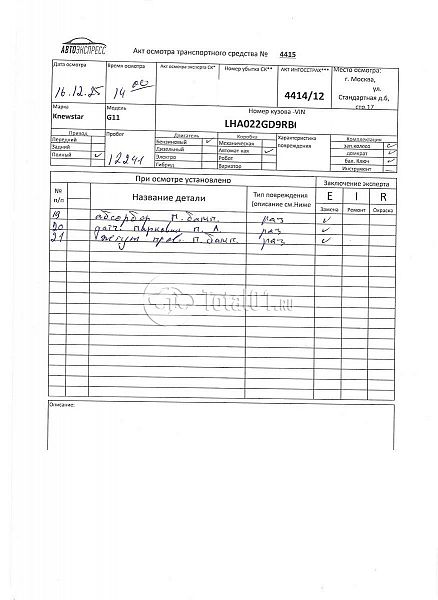 АВТОЭКСПРЕСС
Акт осмотра транспортного средства № 4415
Дата осмотра
Время осмотра
Акт осмотра эксперта СК*
Номер убытка СК**
АКТ ИНГОССТРАХ***
Место осмотра:
г. Москва,
ул.
Стандартная д.6,
стр.17
16.12.25
14 00
4414/12
Марка
Модель
Номер кузова -VIN
Knewstar
G11
LHA022GD9RBI
Привод
Пробег
Двигатель
Коробка
Характеристика
повреждения
Комплектация
Передний
Бензиновый ✓
Механическая
зап.колесо ✓
Задний
Дизельный
Автомат кая ✓
домкрат ✓
Полный ✓
12241
Электро
Робот
бал. Ключ ✓
Гибрид
Вариатор
Инструмент —
При осмотре установлено
Заключение эксперта
№
п/п
Название детали
Тип повреждения
(описание см.Ниже
E I R
Замена Ремонт Окраска
19 абсорбер п. бамп. раз ✓
20 датч. парковки п. Л. раз ✓
21 жгут пров. п. бамп. раз ✓
Total01.ru
Описание: